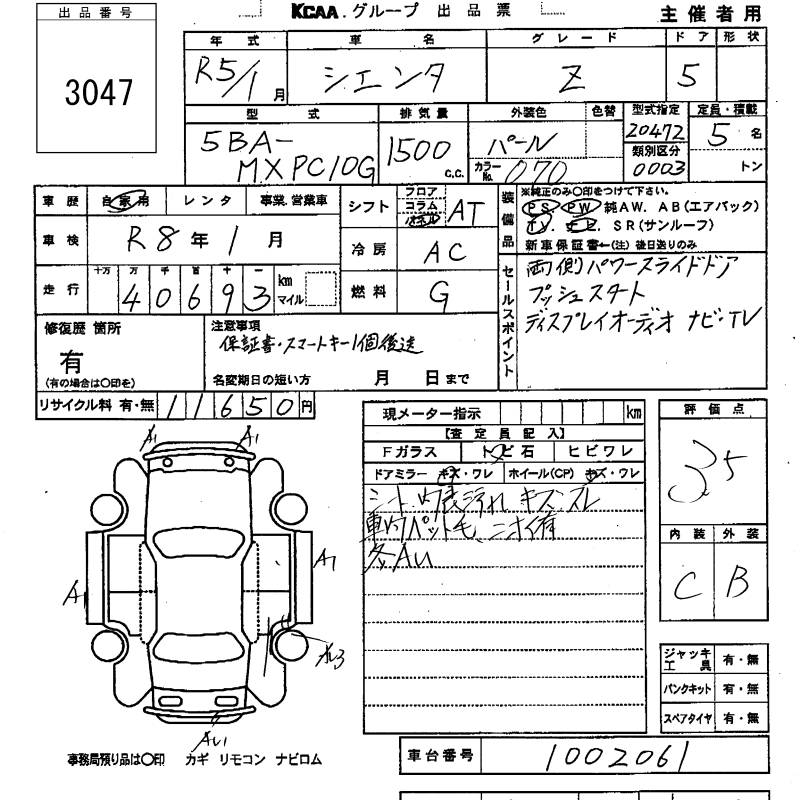 出品番号
3047
KCAA.グループ 出品票
主催者用
年式 車名 グレード ドア 形状
R5/1月 シエンタ Z 5
型式 排気量 外装色 色替 型式指定 定員・積載
5BA-MXPC10G 1500 c.c. パール 20472 5名
カラーNo. 070 類別区分 0003 トン
車歴 自家用 レンタ 事業.営業車
シフト フロア コラム AT
装備品 ※純正のみ〇印をつけて下さい。
PS. PW. 純AW. AB(エアバック)
TV. SR(サンルーフ)
新車保証書←(注) 後日送りのみ
車検 R8年1月
冷房 AC
走行 十万 万 千 百 十 一
40693 km マイル
燃料 G
セールスポイント
両側パワースライドドア
プッシュスタート
ディスプレイオーディオ ナビ・TV
修復歴 箇所
有
(有の場合は〇印を)
注意事項
保証書・スマートキー1個後送
名変期日の短い方 月 日まで
リサイクル料 有・無 11650円
現メーター指示 km
【査定員記入】
Fガラス トビ石 ヒビワレ
ドアミラー キズ・ワレ ホイール(CP) キズ・ワレ
シート、内張汚れ キズ スレ
車内ペット毛、ニオイ有
各AU
評価点
3.5
内装 外装
C B
A1 A1
A1
A
AU1
ジャッキ工具 有・無
パンクキット 有・無
スペアタイヤ 有・無
事務局預り品は〇印 カギ リモコン ナビロム
車台番号 1002061